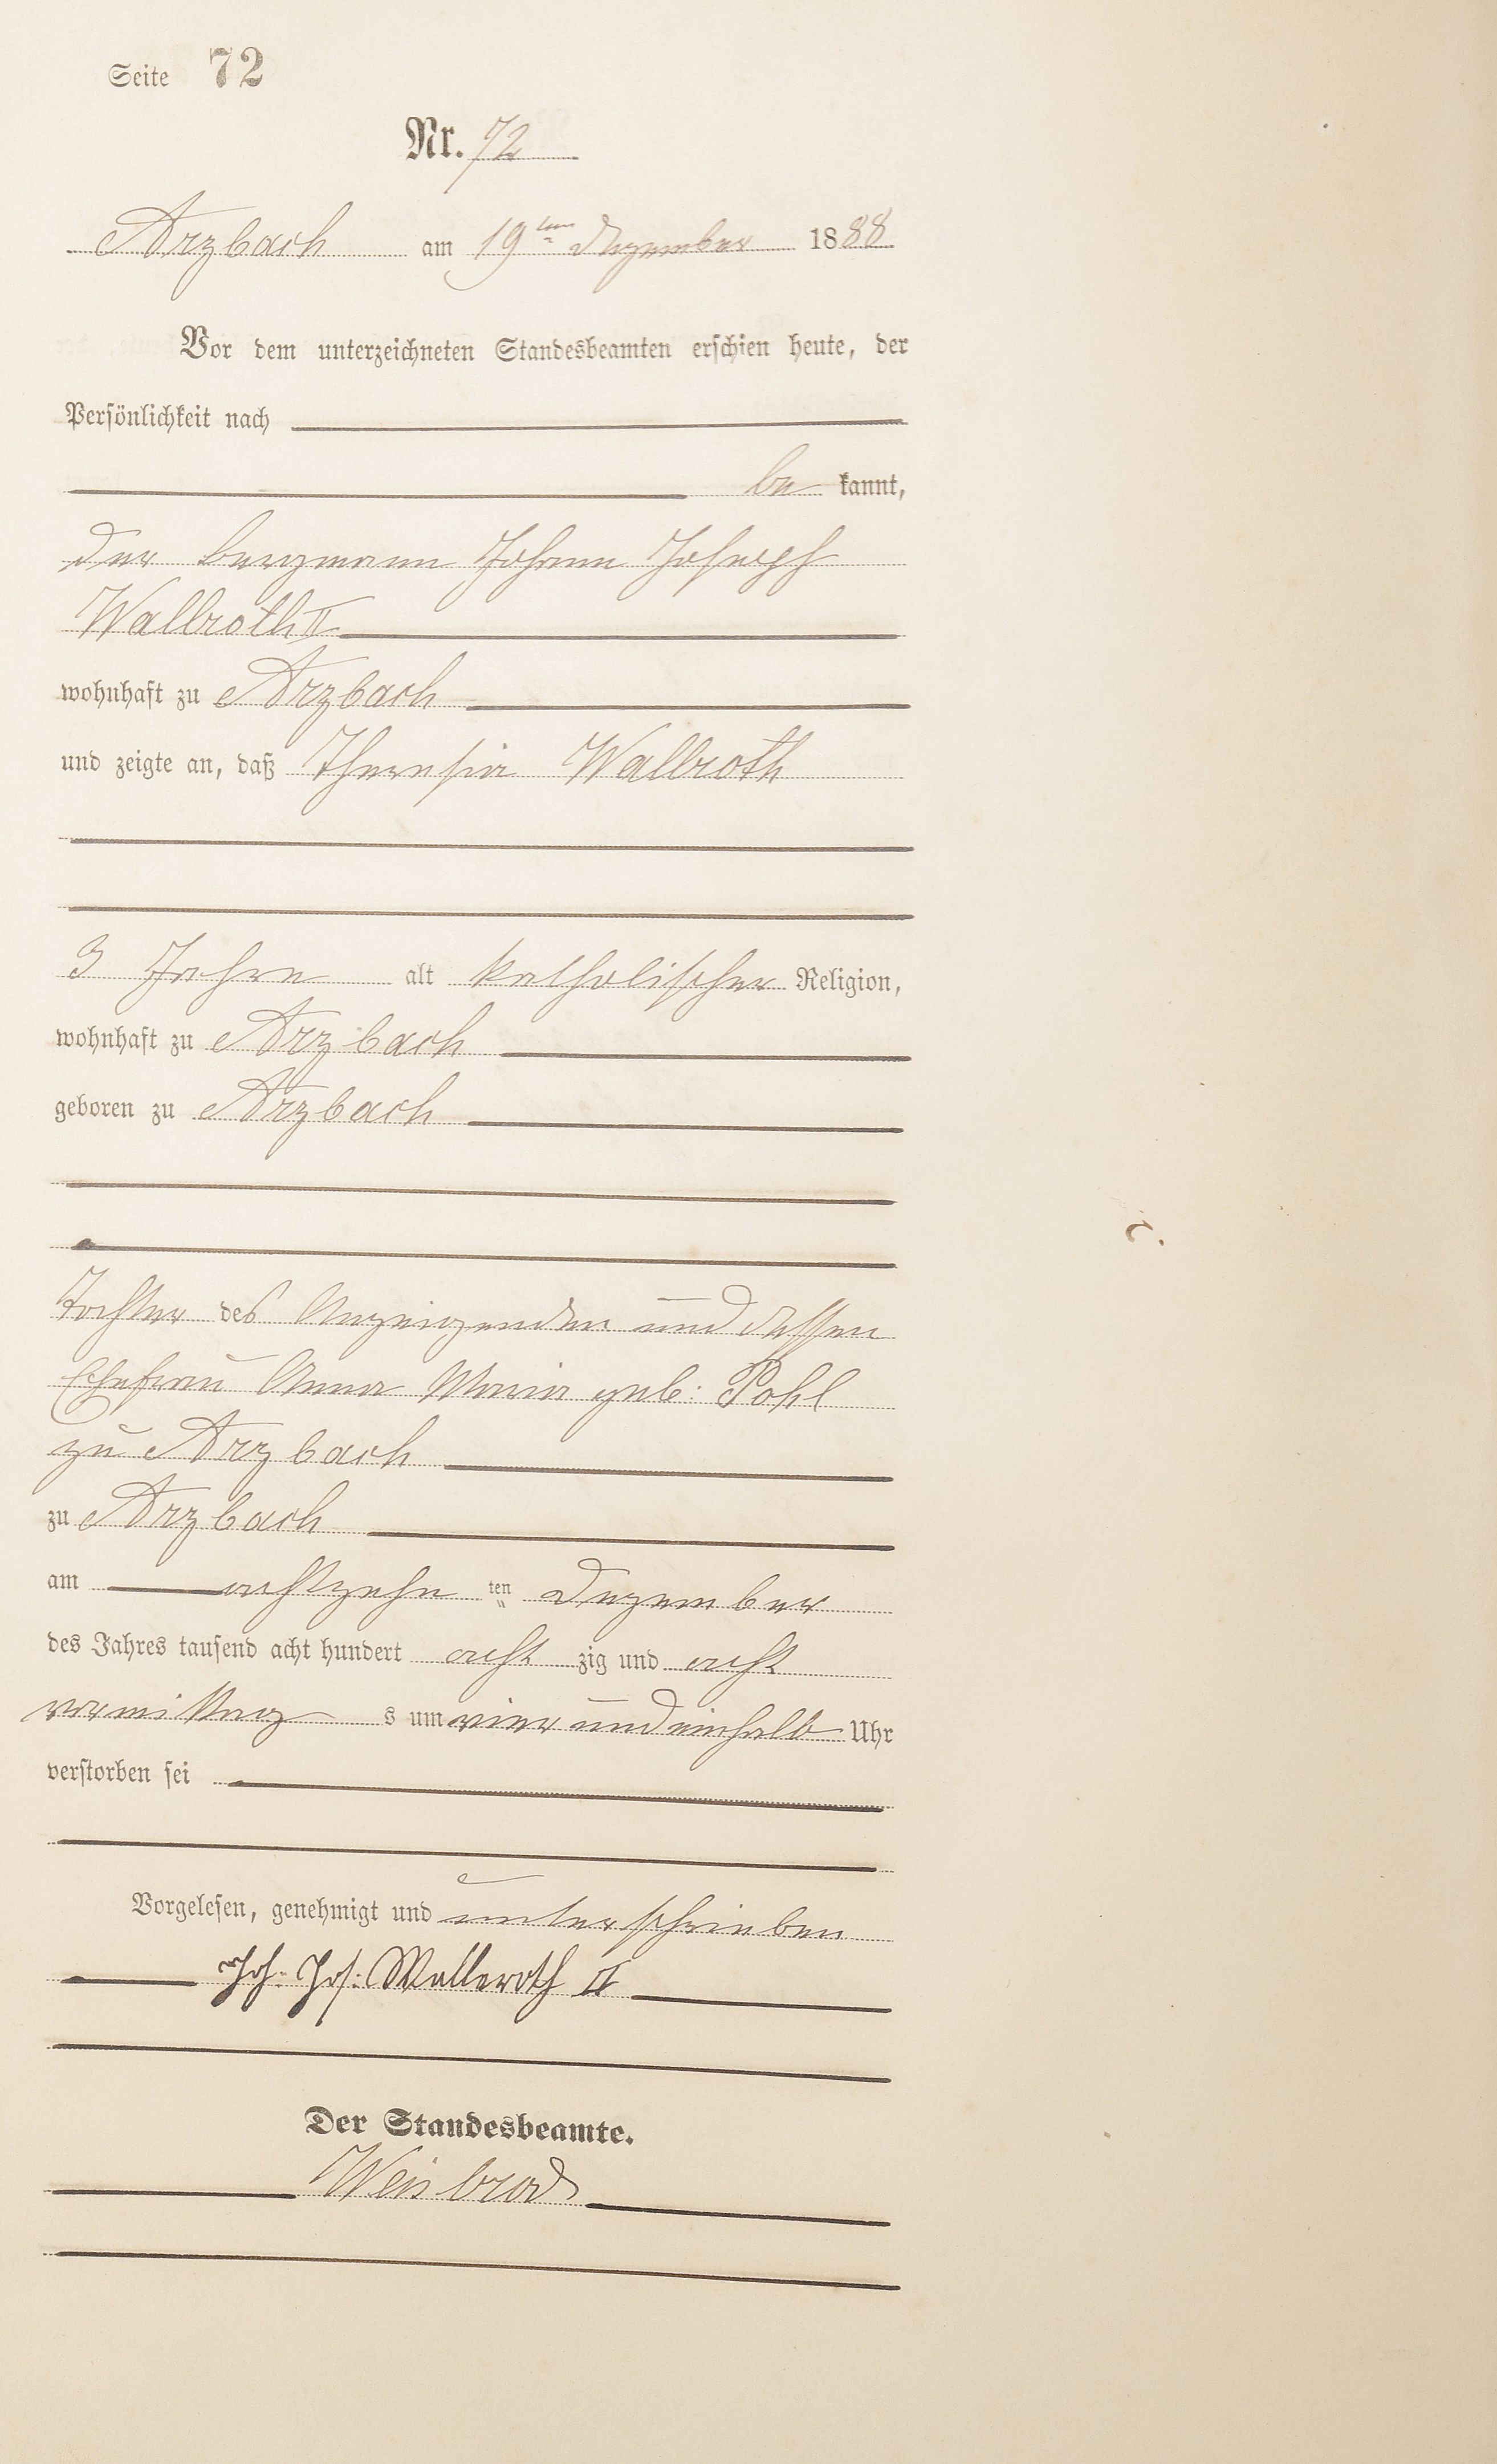 Seite 72
Nr. 72
Arzbach am 19ten Dezember 1888
Vor dem unterzeichneten Standesbeamten erschien heute, der
Persönlichkeit nach
be kannt,
der Bergmann Johann Joseph
Wallroth II
wohnhaft zu Arzbach
und zeigte an, daß Theresia Wallroth
3 Jahre alt katholischer Religion,
wohnhaft zu Arzbach
geboren zu Arzbach
Tochter des Anzeigenden und dessen
Ehefrau Anna Maria geb: Pohl
zu Arzbach
zu Arzbach
am achtzehn ten Dezember
des Jahres tausend acht hundert acht zig und acht
vormittag s um vier und einhalb Uhr
verstorben sei
Vorgelesen, genehmigt und unterschrieben
Joh: Jos: Walleroth II
Der Standesbeamte.
Weisbrod